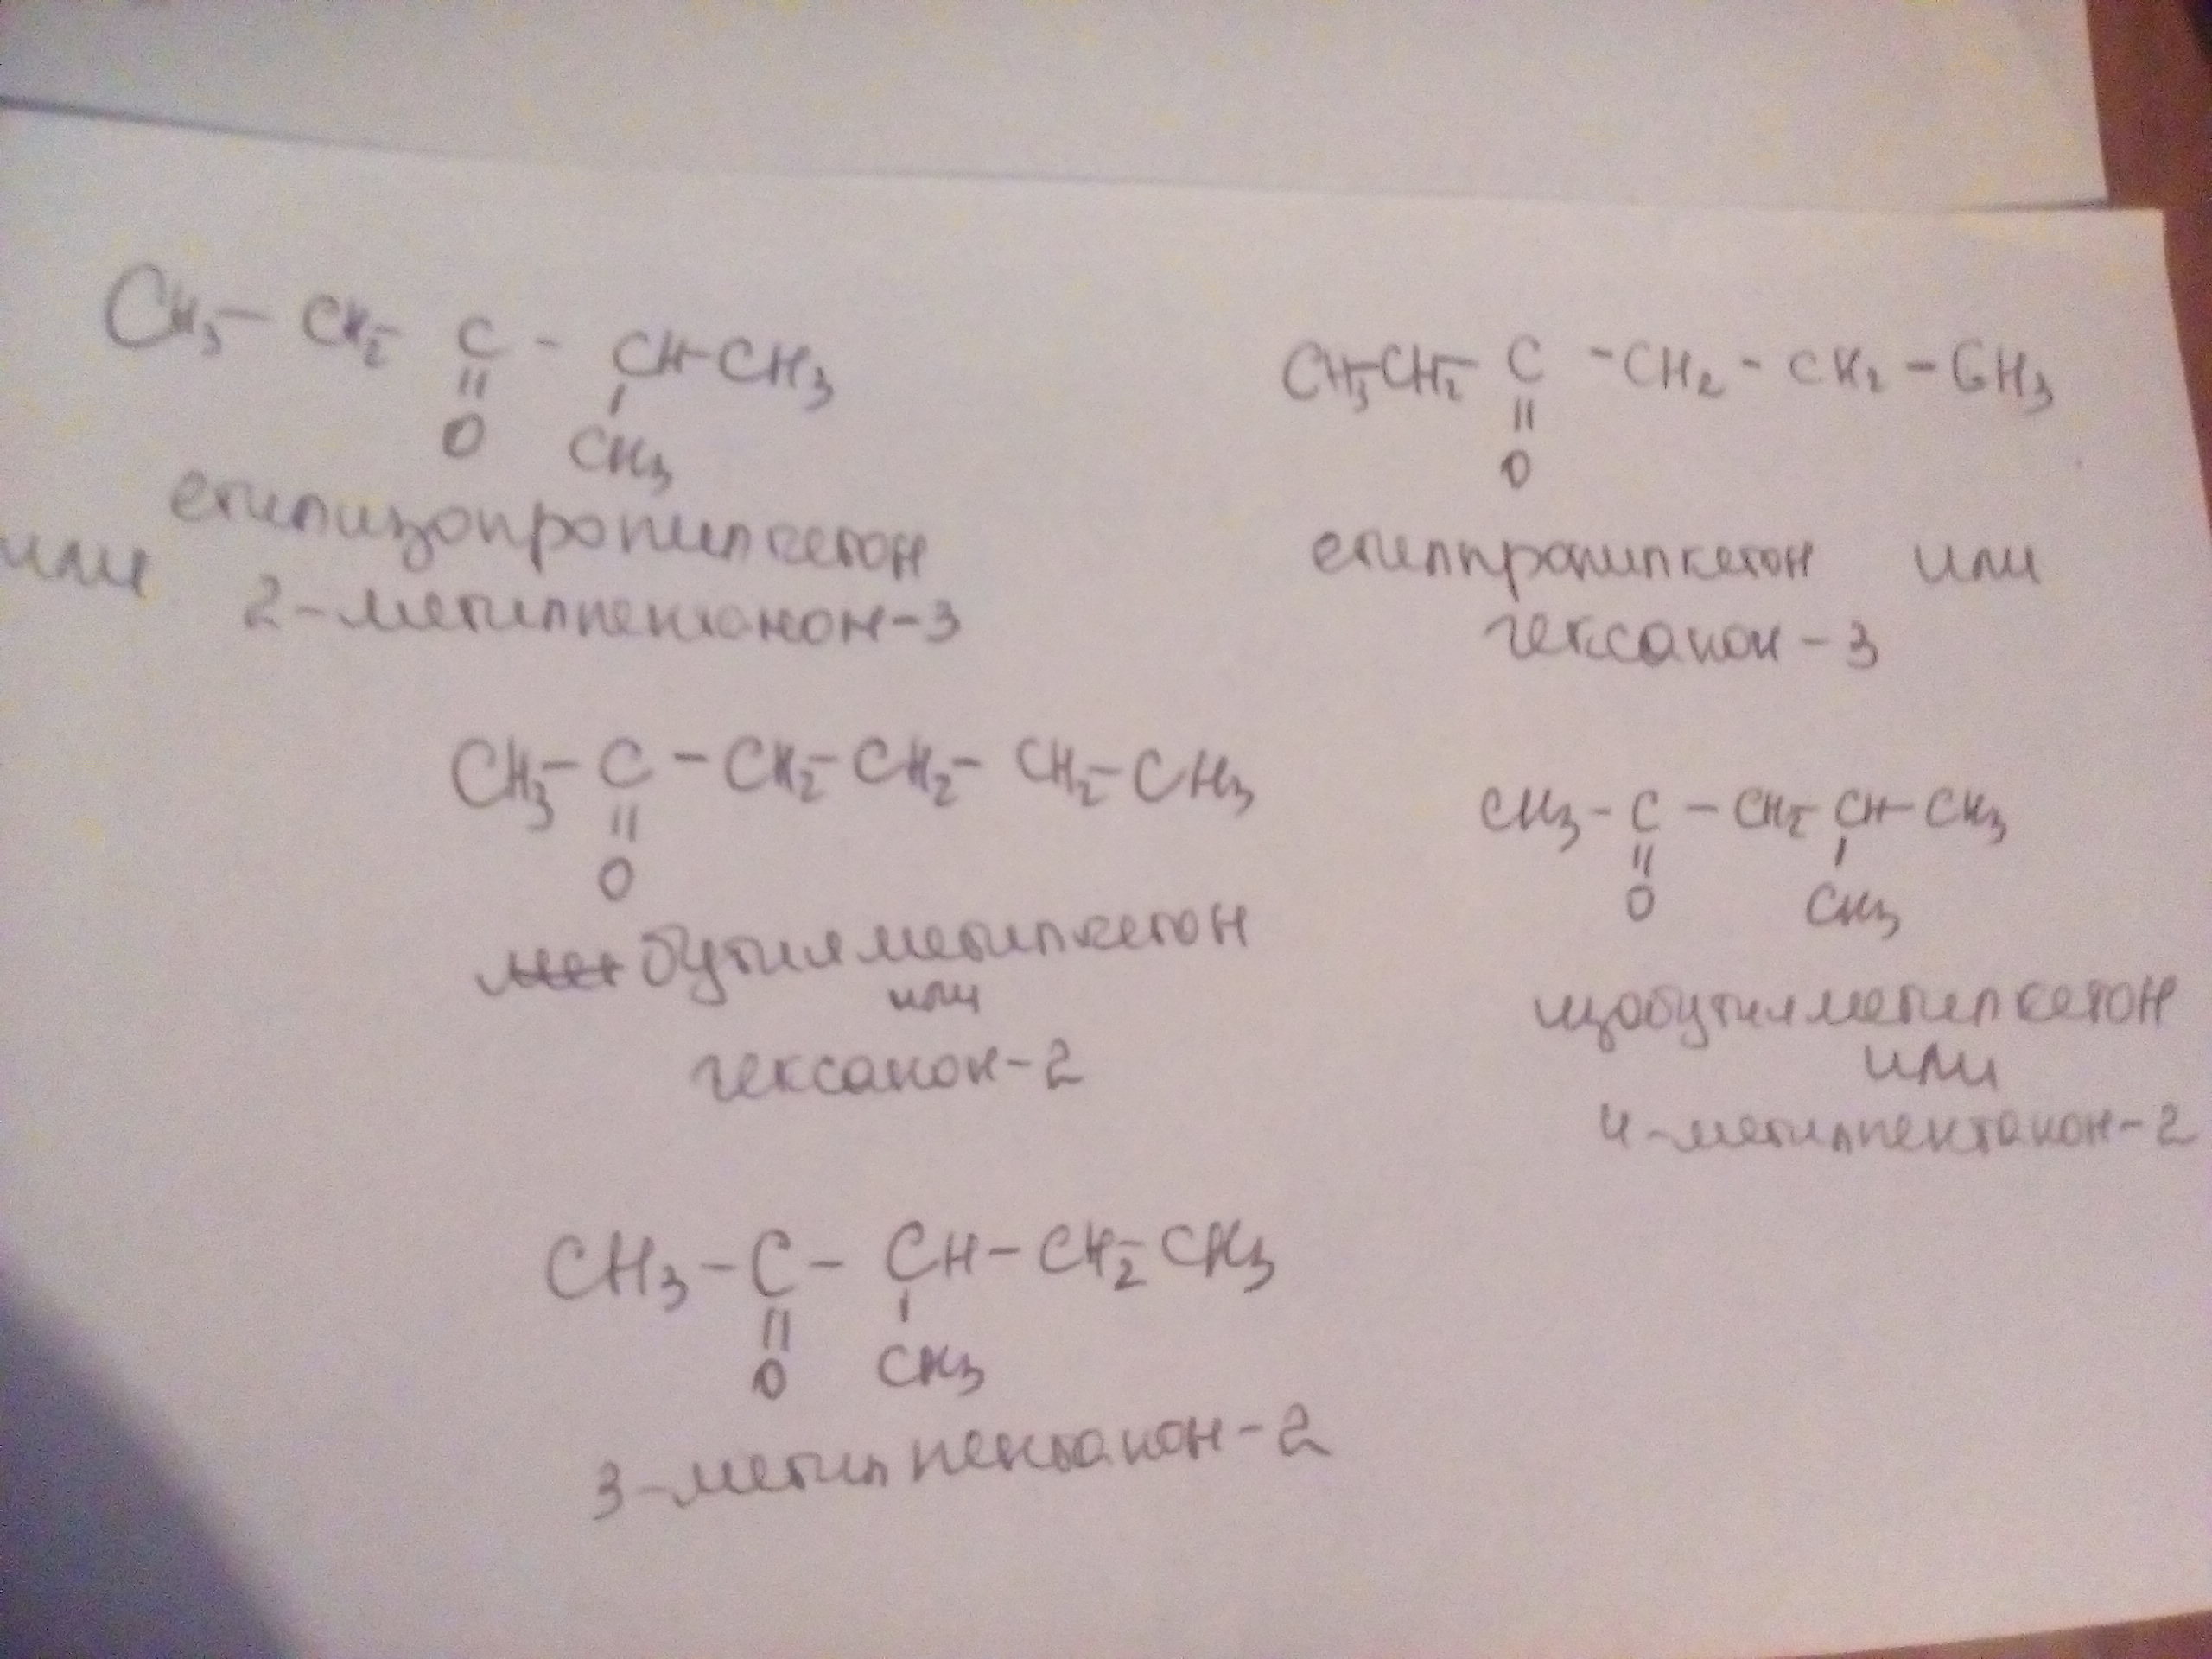 CH3 - CH2 - C - CH - CH3
|| |
O CH3
етилизопропилкетон
или 2-метилпентанон-3
CH3-CH2- C - CH2 - CH2 - CH3
||
O
етилпропилкетон или
гексанон-3
CH3 - C - CH2 - CH2 - CH2 - CH3
||
O
бутилметилкетон
или
гексанон-2
CH3 - C - CH2 - CH - CH3
|| |
O CH3
изобутилметилкетон
или
4-метилпентанон-2
CH3 - C - CH - CH2 - CH3
|| |
O CH3
3-метилпентанон-2